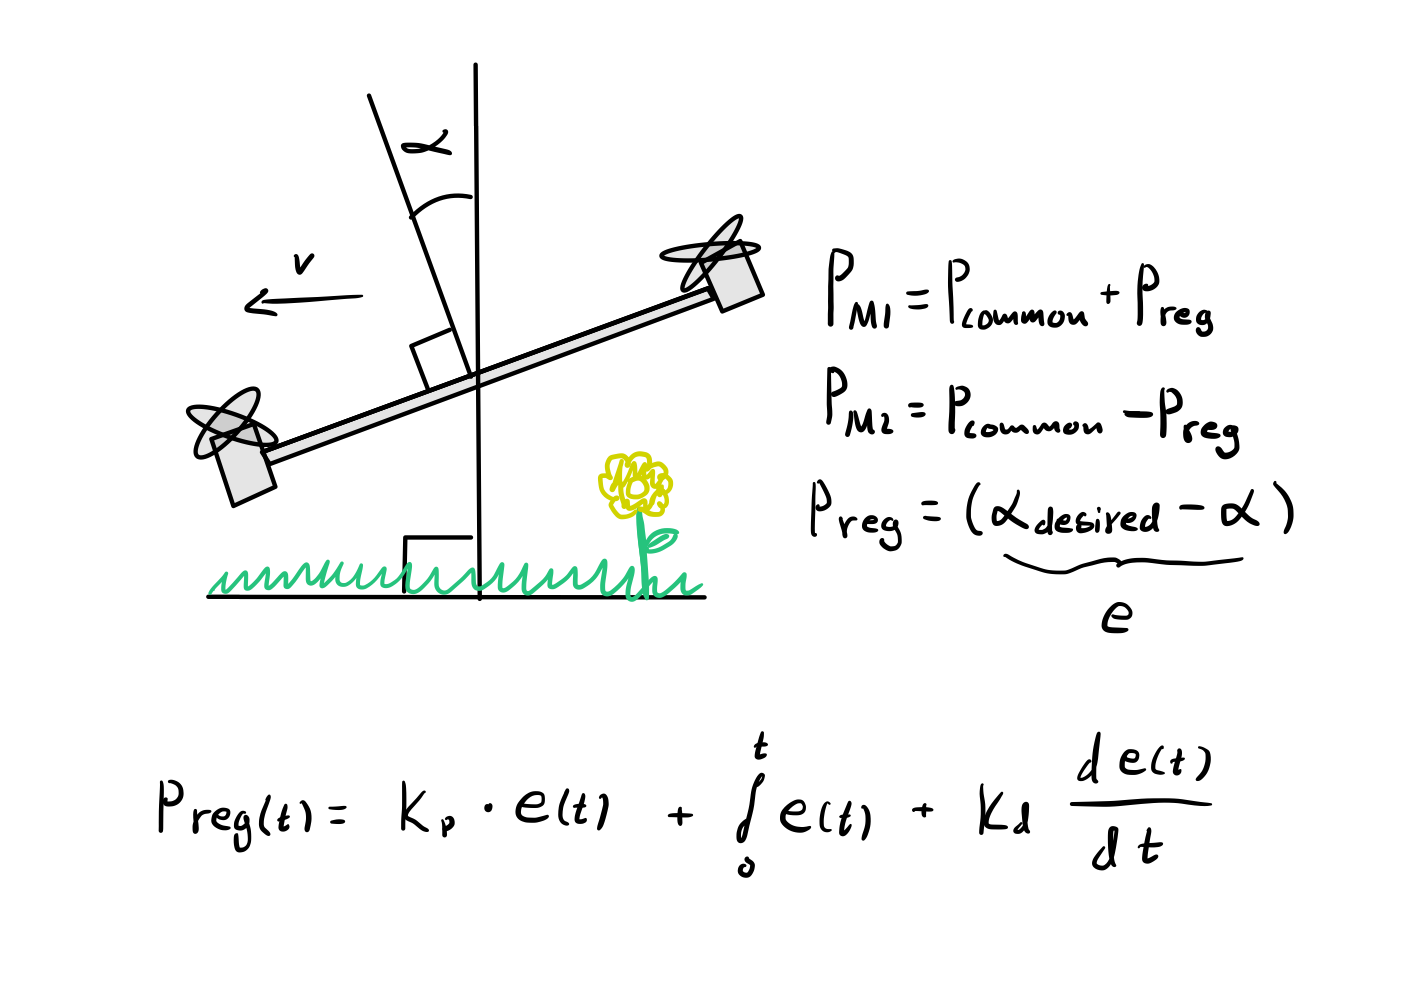 α
v
P_M1 = P_common + P_reg
P_M2 = P_common - P_reg
P_reg = (α_desired - α)
e
P_reg(t) = K_p · e(t) + ∫_0^t e(t) + K_d d e(t) / d t